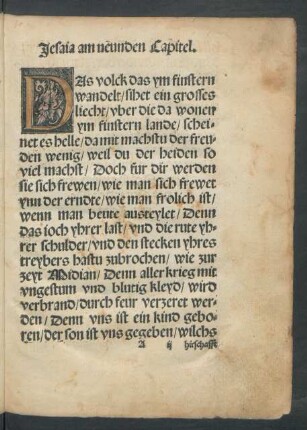 Jesaia am neunden Capitel.
DAs volck das ym finstern
wandelt/sihet ein grosses
liecht/vber die da wonen
ym finstern lande/schei-
net es helle/da mit machstu der freu
den wenig/weil du der heiden so
viel machst/Doch fur dir werden
sie sich frewen/wie man sich frewet
ynn der erndte/wie man frolich ist/
wenn man beute austeylet/Denn
das ioch yhrer last/vnd die rute yh-
rer schulder/vnd den stecken yhres
treybers hastu zubrochen/wie zur
zeyt Midian/Denn aller krieg mit
vngestum vnd blutig kleyd/wird
verbrand/durch feur verzeret wer-
den/Denn vns ist ein kind gebo-
ren/der son ist vns gegeben/wilchs
A ij hirschafft